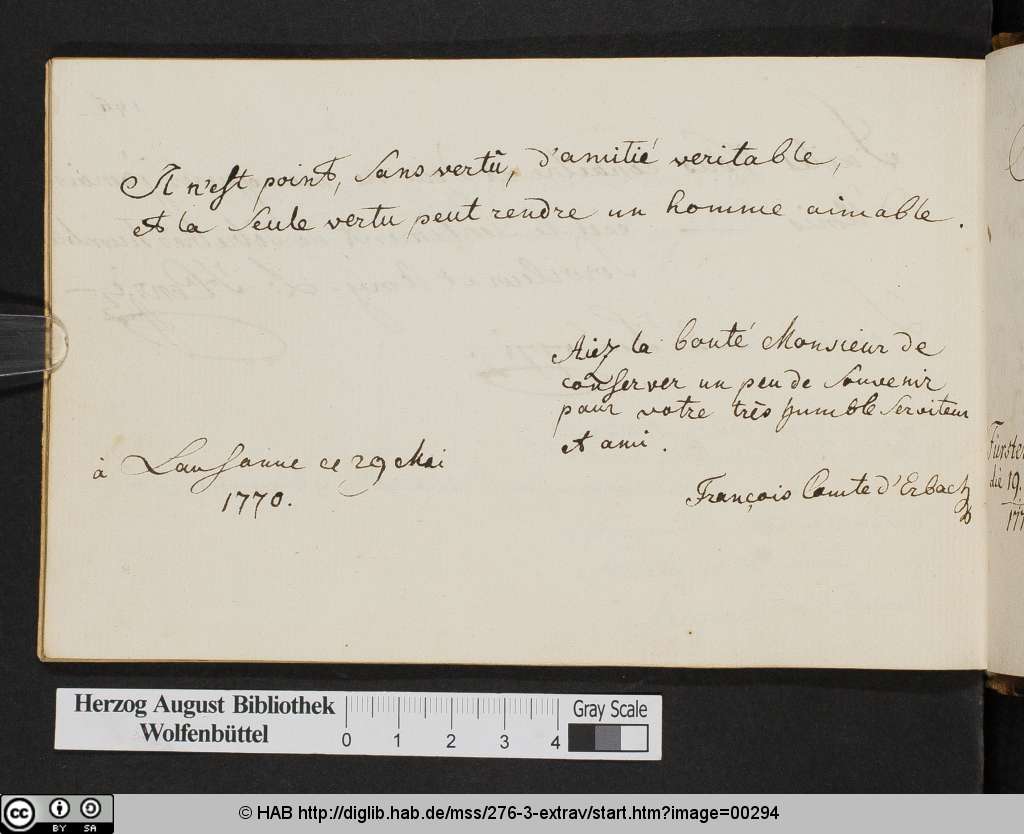 Il n'est point, sans vertu, d'amitié veritable,
et la seule vertu peut rendre un homme aimable.
Aiez la bonté Monsieur de
conserver un peu de souvenir
pour votre très humble serviteur
et ami.
à Lausanne ce 29 Mai
1770.
François Comte d'Erbach
Fürsten
19.
177
Herzog August Bibliothek
Wolfenbüttel
0 1 2 3 4
Gray Scale
cc BY SA
© HAB http://diglib.hab.de/mss/276-3-extrav/start.htm?image=00294